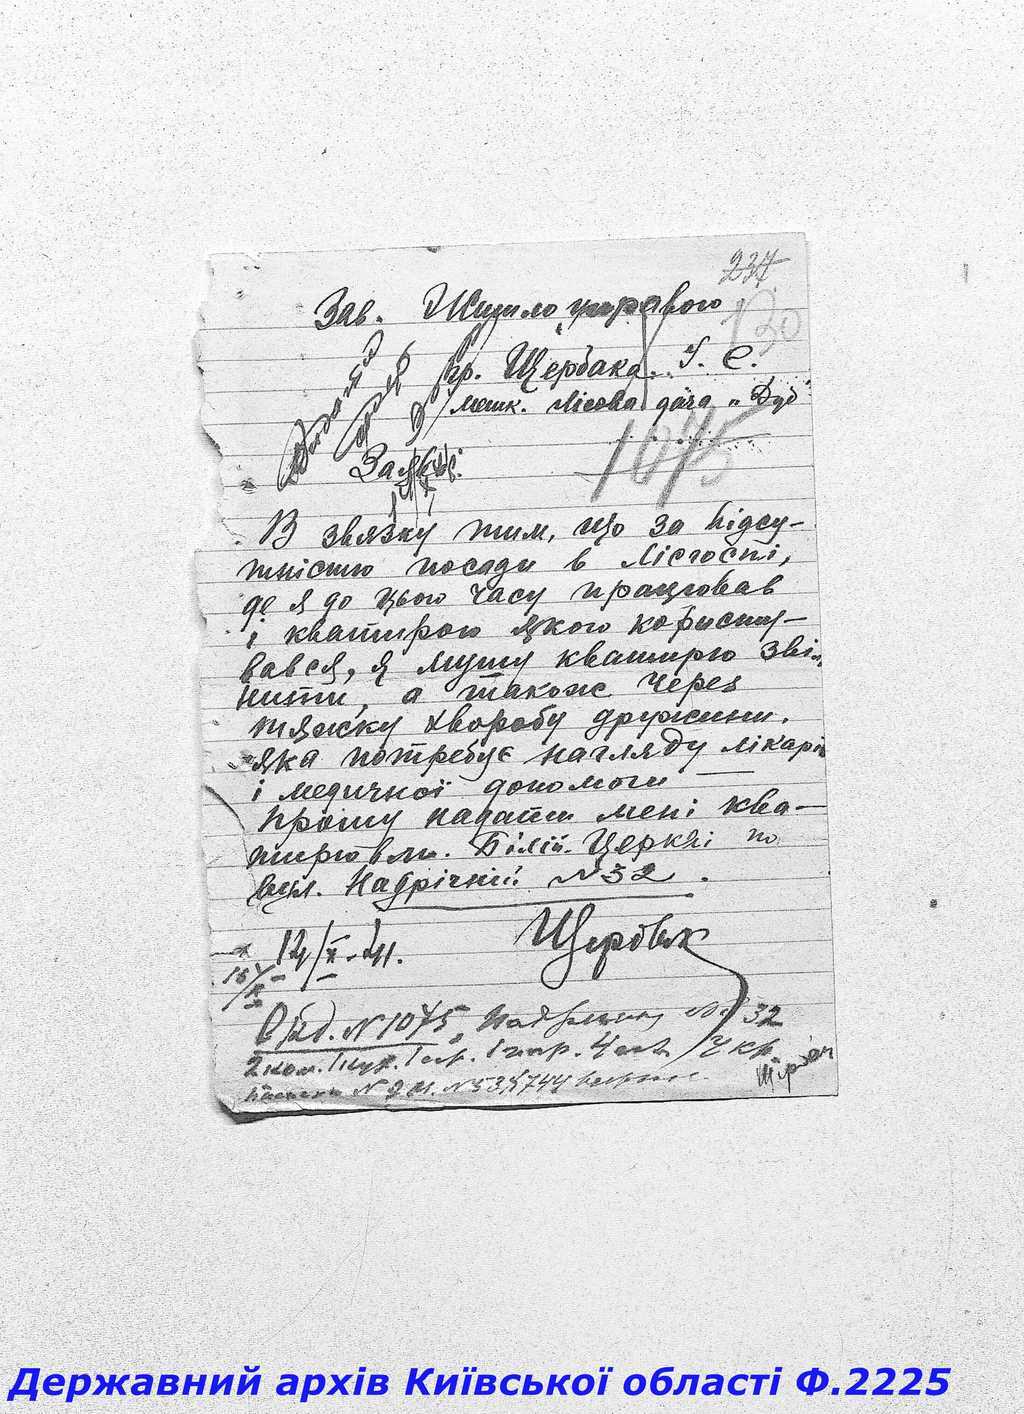 237
Зав. Житло управою
130
гр. Щербака І. Є.
мешк. лісова дача „Дуб
1075
Видати
ордер
Заява
В звязку тим, що за відсу-
тністю посади в Лісгоспі,
де я до цього часу працював
і кватирою якого користу-
вався, я мушу кватирю звіл
нити, а також через
тяжку хворобу дружини,
яка потребує нагляду лікарів
і медичної допомоги —
прошу надати мені ква-
тирю в м. Білій-Церкві по
вул. Надрічній №32.
Щербак
14/X-41.
15/X
Орд. №1075, Надрічна №32
2 ком. 1 кух. 1 4 1 кр.
Щербак
Державний архів Київської області Ф.2225